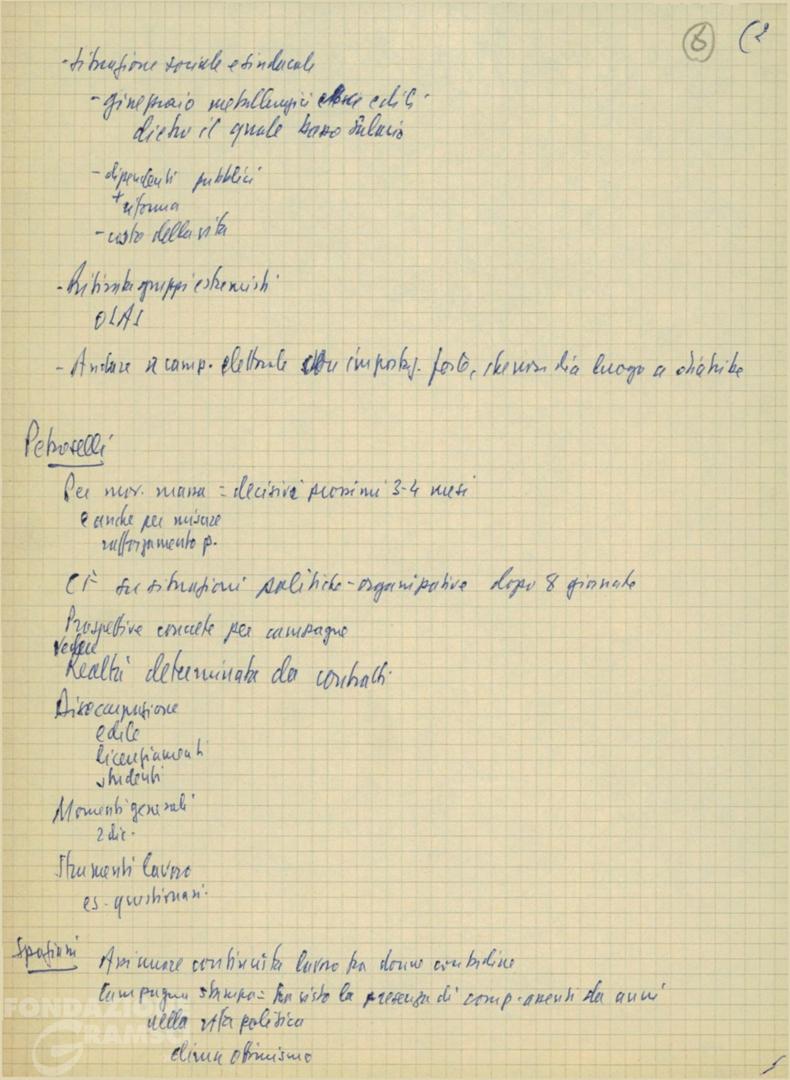 6 (2
- situazione sociale e sindacale
- ginepraio metallurgici edili
dietro il quale basso salario
- dipendenti pubblici
+ riforma
- costo della vita
- gruppi estremisti
- Andare a camp. elettorale con impostaz. forte, che non dia luogo a diatribe
Petroselli
Per mov. massa = decisivi prossimi 3-4 mesi
e anche per misure
rafforzamento p.
CF su situazioni politiche-organizzative dopo 8 giornate
Prospettive concrete per campagne
Vedere
Realtà determinata da contratti
Disoccupazione
edile
licenziamenti
studenti
Momenti generali
2 dic.
Strumenti lavoro
es. questionari
Spaziani
Assicurare continuità lavoro tra donne contadine
Campagna stampa = ha visto la presenza di comp. assenti da anni
nella vita politica
clima ottimismo
FONDAZIONE
GRAMSCI